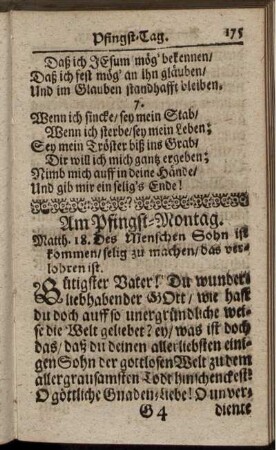 Pfingst-Tag. 175
Daß ich JEsum mög' bekennen/
Daß ich fest mög' an ihn gläuben/
Und im Glauben standhafft bleiben.
7.
Wenn ich sincke/ sey mein Stab/
Wenn ich sterbe/ sey mein Leben;
Sey mein Tröster biß ins Grab/
Dir will ich mich gantz ergeben;
Nimb mich auff in deine Hände/
Und gib mir ein selig's Ende!
Am Pfingst-Montag.
Matth. 18. Des Menschen Sohn ist
kommen/ selig zu machen/ das ver-
lohren ist.
Gütigster Vater! Du wunder-
liebhabender GOtt/ wie hast
du doch auff so unergründliche wei-
se die Welt geliebet? ey/ was ist doch
das/ daß du deinen allerliebsten eini-
gen Sohn der gottlosen Welt zu dem
allergrausamsten Todt hinschenckest?
O göttliche Gnaden-Liebe! O unver-
G 4 diente